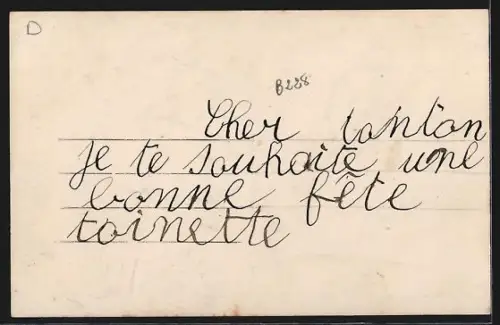 D
B228
Cher tonton
je te souhaite une
bonne fête
toinette